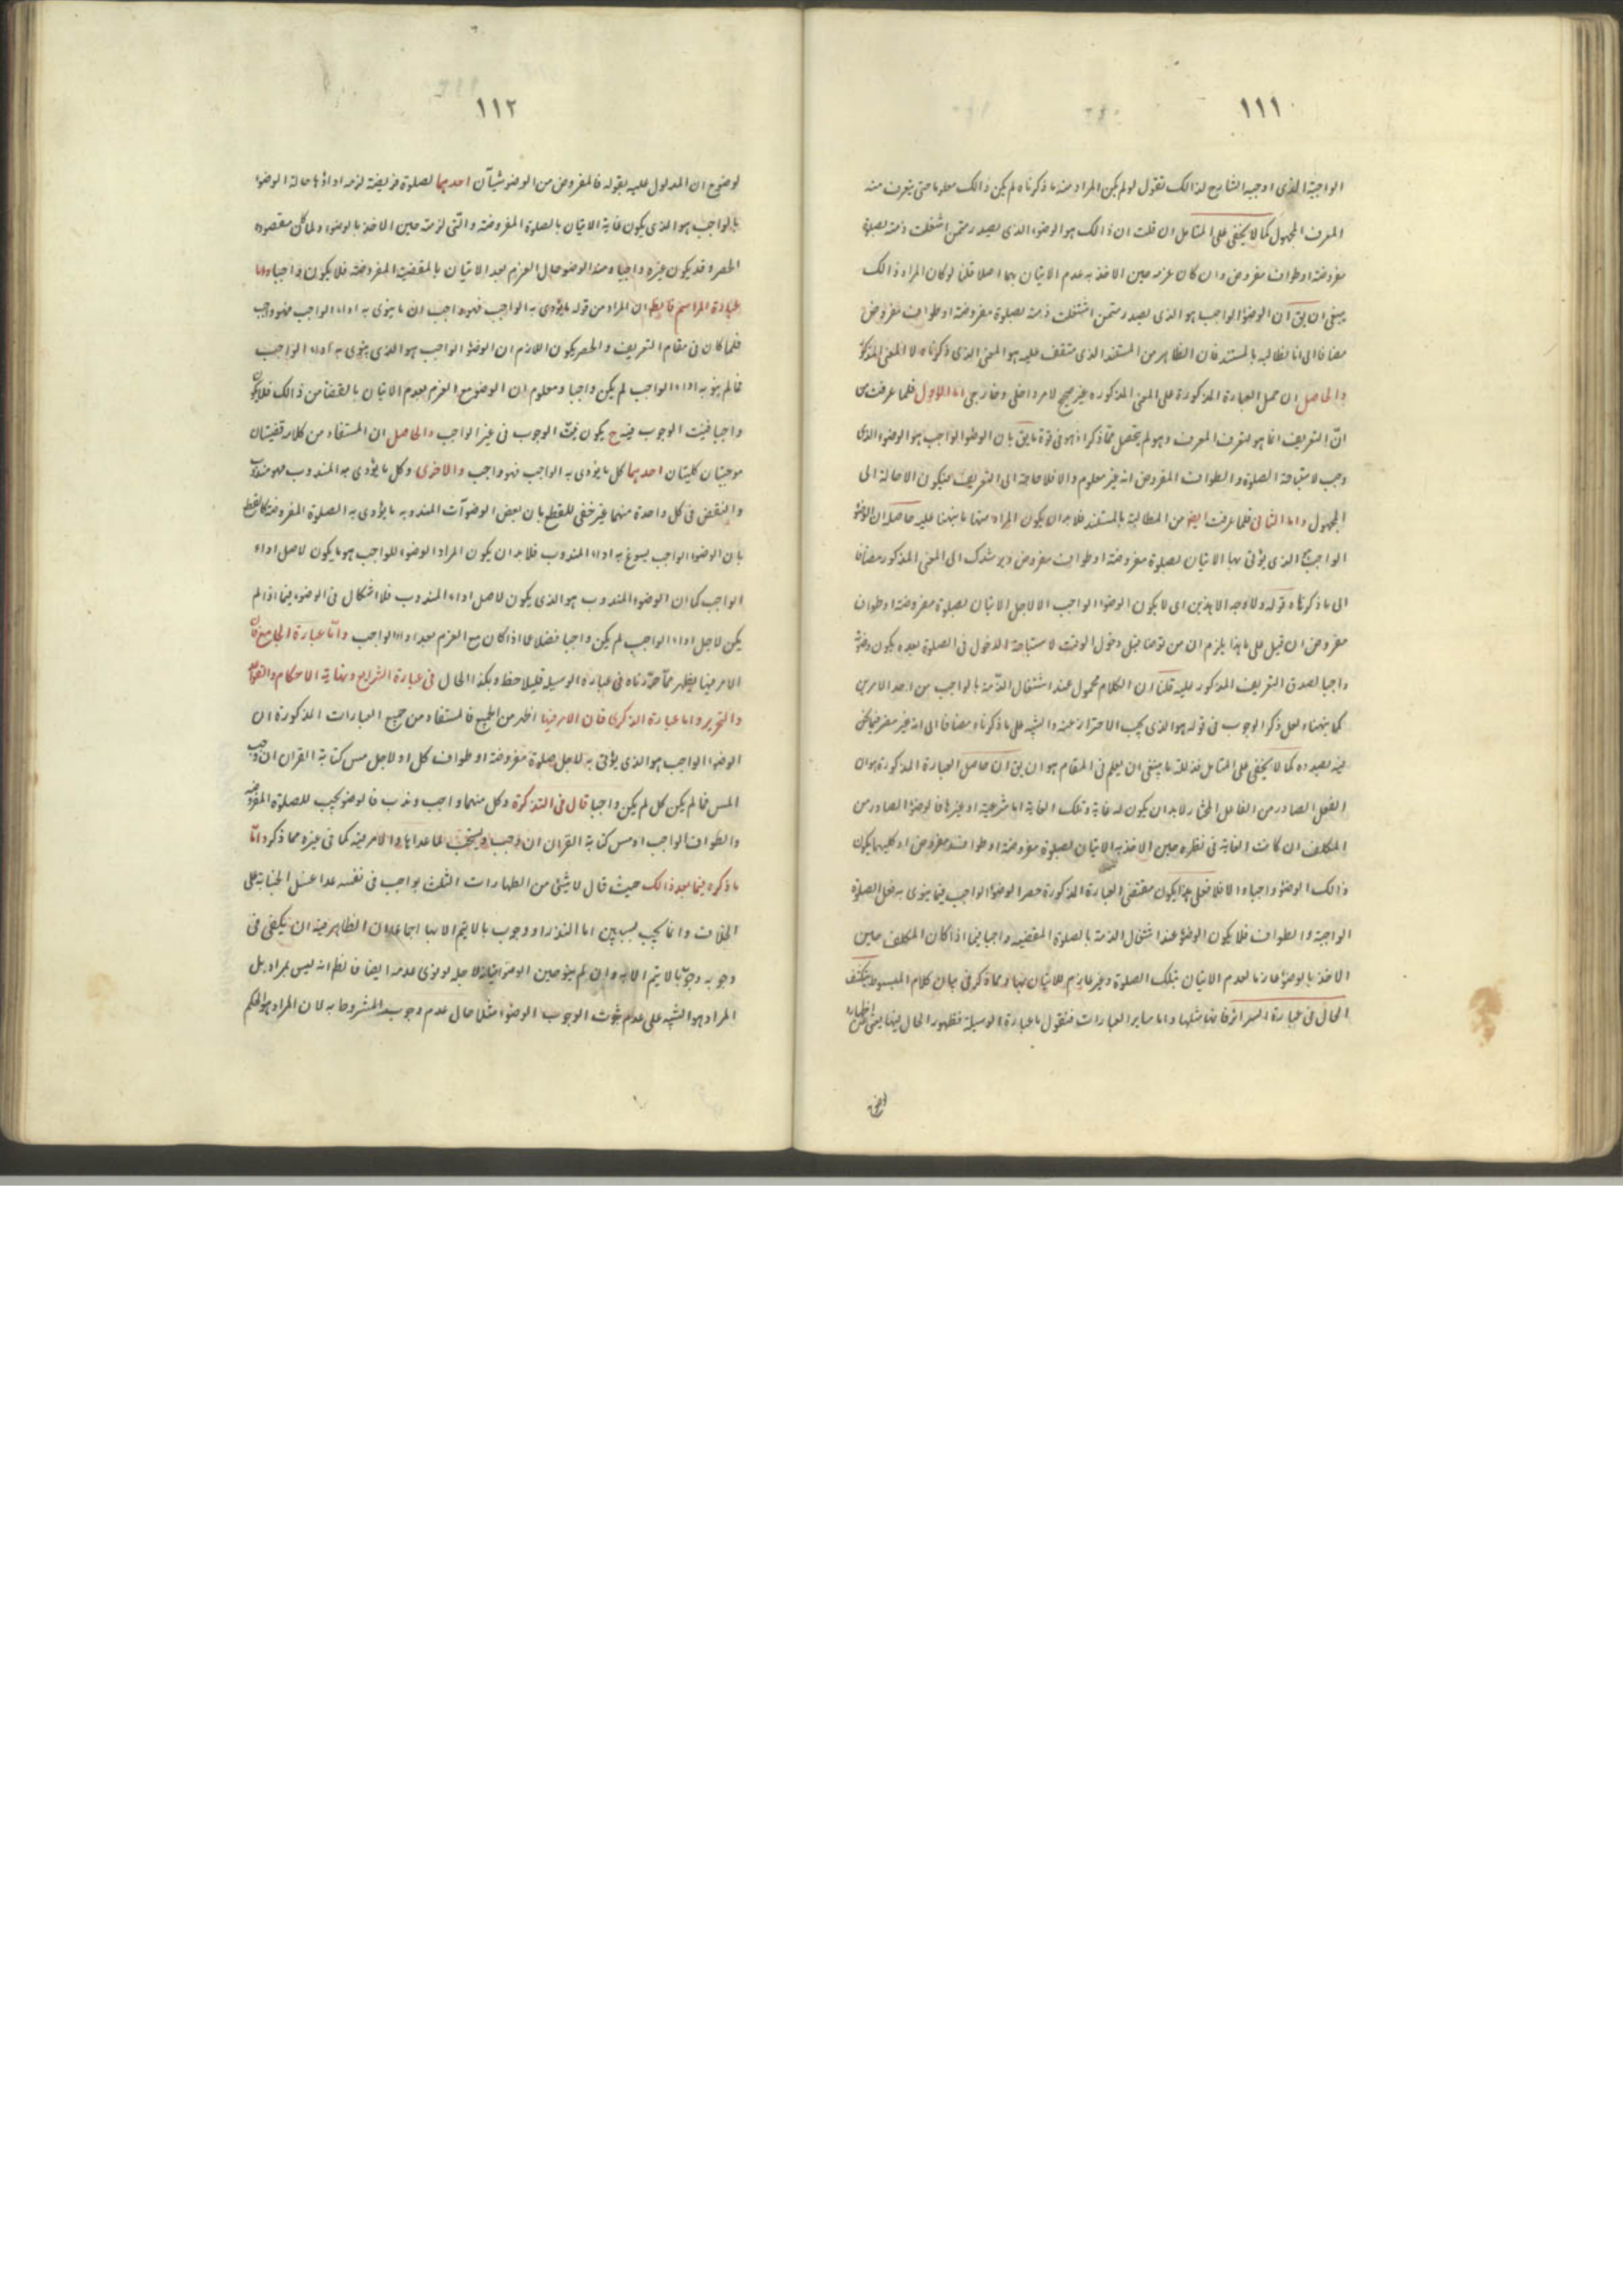 ١١١
الواجبة الذى اوجبه الشارع لذالك نقول لو لم يكن المراد منه ما ذكرناه لم يكن ذالك معلوما حتى يتعرف منه
المعرف المجهول كما لا يخفى على المتامل ان قلت ان ذالك هو الوضوء الذى يصدر ممن اشتغلت ذمته بصلوة
مفروضة او طواف مفروض وان كان عزمه حين الاخذ به عدم الاتيان بهما اصلا قلنا لو كان المراد ذالك
ينبغى ان يق ان الوضوء الواجب هو الذى يصدر ممن اشتغلت ذمته بصلوة مفروضة او طواف مفروض
مضافا الى انا نطالبه بالمستند فان الظاهر من المستند الذى ستقف عليه هو المعنى الذى ذكرناه لا المعنى المذكور
والحاصل ان حمل العبارة المذكورة على المعنى المذكور غير صحيح لامر داخلى وخارجى اما الاول فلما عرفت من
انّ التعريف انما هو لتعرف المعرف وهو لم يتحصل ممّا ذكر اذ هو فى قوة ما يق بان الوضوء الواجب هو الوضوء الذى
وجب لاستباحة الصلوة والطواف المفروض انه غير معلوم والا فلا حاجة الى التعريف فيكون الاحالة الى
المجهول واما الثانى فلما عرفت ايضا من المطالبة بالمستند فلا بد ان يكون المراد منها ما نبهنا عليه حاصله ان الوضوء
الواجب الذى يؤتى بها الاتيان بصلوة مفروضة او طواف مفروض ويرشدك الى المعنى المذكور مضافا
الى ما ذكرناه قوله ولا وجه الا هذين اى لا يكون الوضوء الواجب الا لاجل الاتيان بصلوة مفروضة او طواف
مفروض ان قيل على ما هذا يلزم ان من توضا قبل دخول الوقت لاستباحة الدخول فى الصلوة بعده يكون وضوئه
واجبا لصدق التعريف المذكور عليه قلنا ان الكلام محمول عند اشتغال الذّمة بالواجب من احد الامرين
كما نبهنا ولعل ذكر الوجوب فى قوله هو الذى يجب الاحتراز عنه والتنبيه على ما ذكرناه مضافا الى انه غير مضر فيما نحن
فيه بصدده كما لا يخفى على المتامل فذلكة ما ينبغى ان يعلم فى المقام هو ان يق ان حاصل العبارة المذكورة هو ان
الفعل الصادر من الفاعل المختار لا بد ان يكون له غاية وتلك الغاية اما شرعية او غيرها فالوضوء الصادر من
المكلف ان كانت الغاية فى نظره حين الاخذ به الاتيان بصلوة مفروضة او طواف مفروض او كليهما يكون
ذالك الوضوء واجبا والا فلا فعلى هذا يكون مقتضى العبارة المذكورة حصر الوضوء الواجب فيما ينوى به فعل الصلوة
الواجبة والطواف فلا يكون الوضوء عند اشتغال الذمة بالصلوة المقضية واجبا فيما اذا كان المكلف حين
الاخذ بالوضوء عازما لعدم الاتيان بتلك الصلوة وغير عازم للاتيان بها ومما ذكر فى بيان كلام المبسوط ينكشف
الحال فى عبارة السرائر فانها مثلها واما ساير العبارات فنقول ما عبارة الوسيلة فظهور الحال فيها يغنى عن اظهاره
١١٢
لوضوح ان المدلول عليه بقوله فالمفروض من الوضوء شيآن احدهما لصلوة فريضة لزمه اداؤها حالة الوضوء
بالواجب هو الذى يكون غاية الاتيان بالصلوة المفروضة والّتى لزمته حين الاخذ بالوضوء ولما كان مقصوده
الحصر وقد يكون غيره واجبا ومنه الوضوء حال العزم بعد الاتيان بالمقضية المفروضة فلا يكون واجبا واما
عبارة المراسم فالظ ان المراد من قوله ما يؤدى به الواجب فهو واجب ان ما ينوى به اداء الواجب فهو واجب
فلما كان فى مقام التعريف والحصر يكون اللازم ان الوضوء الواجب هو الذى ينوى به اداء الواجب
فما لم ينو به اداء الواجب لم يكن واجبا ومعلوم ان الوضوء مع العزم بعدم الاتيان بالقضاء من ذالك فلا يكون
واجبا فنيت الوجوب فيه ح يكون نيّت الوجوب فى غير الواجب والحاصل ان المستفاد من كلامه قضيتان
موجبتان كليتان احدهما كل ما يؤدى به الواجب فهو واجب والاخرى وكل ما يؤدى به المندوب فهو مندوب
والنقض فى كل واحدة منهما غير خفى للقطع بان بعض الوضوآت المندوبه ما يؤدى به الصلوة المفروضة كالقطع
بان الوضوء الواجب يسوغ به اداء المندوب فلا بد ان يكون المراد الوضوء للواجب هو ما يكون لاجل اداء
الواجب كما ان الوضوء المندوب هو الذى يكون لاجل اداء المندوب فلا اشكال فى الوضوء فيما اذا لم
يكن لاجل اداء الواجب لم يكن واجبا فضلا عما اذا كان مع العزم بعد اداء الواجب وامّا عبارة الجامع فان
الامر فيها يظهر ممّا حرّرناه فى عبارة الوسيله فليلاحظ وهكذا الحال فى عبارة الشرايع ونهاية الاحكام والقواعد
والتحرير واما عبارة الذكرى فان الامر فيها اظهر من الجميع فالمستفاد من جميع العبارات المذكورة ان
الوضوء الواجب هو الذى يؤتى به لاجل صلوة مفروضة او طواف كل او لاجل مس كتابة القران ان وجب
المس فما لم يكن كل لم يكن واجبا قال فى التذكرة وكل منهما واجب وندب فالوضوء يجب للصلوة المفروضة
والطواف الواجب او مس كتابة القران ان وجب ويستحب لما عداها والامر فيه كما فى غيره مما ذكر وامّا
ما ذكره فيما بعد ذالك حيث قال لا شئ من الطهارات الثلث بواجب فى نفسه عدا غسل الجنابة على
الخلاف وانما يجب بسببين اما النذر او وجوب ما لا يتم الا بها اجماعا فان الظاهر منه ان يكفى فى
وجوبه وجوب ما لا يتم الا به وان لم ينو حين الوضوء اتيانه لاجله او نوى عدمه ايضا فالظ انه ليس بمراد بل
المراد هو التنبيه على عدم ثبوت الوجوب الوضوء مثلا حال عدم وجوب المشروط به لا ان المراد هو الحكم